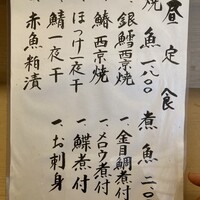 昼定食
焼魚 一、八〇〇
一、銀鱈西京焼
一、鰆西京焼
一、ほっけ一夜干
一、鯖一夜干
一、赤魚粕漬
煮魚 二、〇
一、金目鯛煮付
一、メロウ煮付
一、鰈煮付
一、お刺身